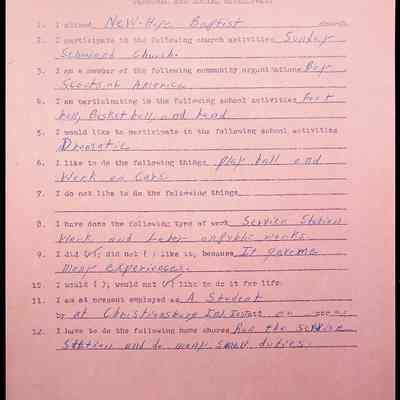 PERSONAL AND SOCIAL DEVELOPMENT
1. I attend New-Hope Baptist church.
2. I participate in the following church activities Sunday
School and Church.
3. I am a member of the following community organizations Boy
Scouts of America
4. I am participating in the following school activities Foot
ball, Basket ball, and band
5. I would like to participate in the following school activities
Dramatic
6. I like to do the following things play ball and
Work on Cars.
7. I do not like to do the following things
8. I have done the following type of work Service Station
Work and Labor on public works
9. I did (✓); did not ( ) like it, because It gave me
many experiences.
10. I would ( ); would not (✓) like to do it for life.
11. I am at present employed as A Student
by at Christiansburg Ind. Instet on
12. I have to do the following home chores Run the service
Station and do many small duties.